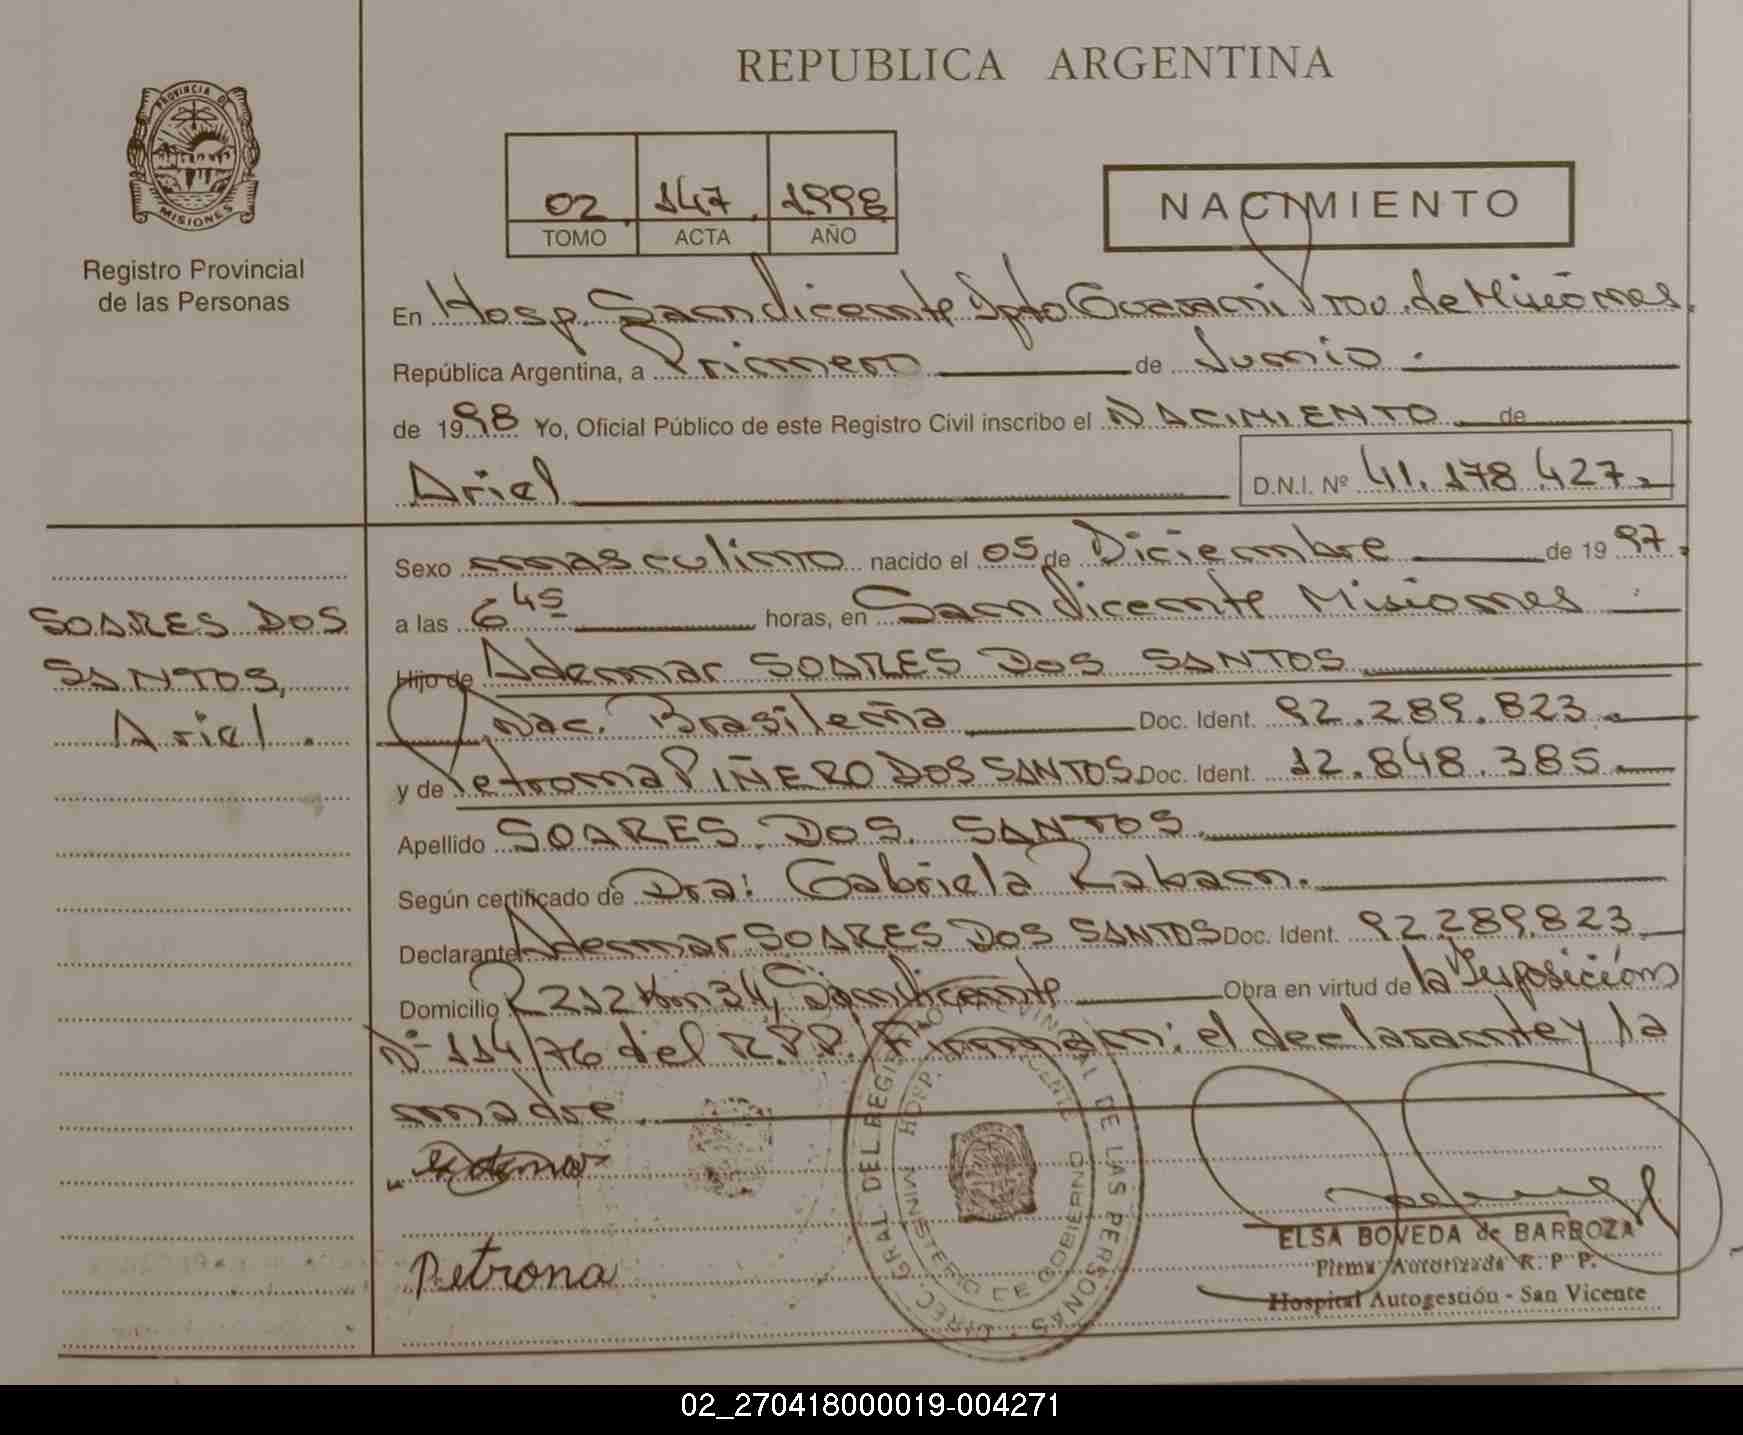 REPUBLICA ARGENTINA
PROVINCIA DE
MISIONES
Registro Provincial
de las Personas
02 147 1998
TOMO ACTA AÑO
NACIMIENTO
En Hosp. San Vicente Dpto Guarani Prov. de Misiones.
República Argentina, a Primero de Junio.
de 1998 Yo, Oficial Público de este Registro Civil inscribo el NACIMIENTO de
Ariel D.N.I. Nº 41.178.427.
Sexo masculino nacido el 05 de Diciembre de 1997.
a las 6 45 horas, en San Vicente Misiones
Hijo de Ademar SOARES DOS SANTOS
Nac. Brasileña Doc. Ident. 92.289.823.
y de Petrona PIÑERO DOS SANTOS Doc. Ident. 12.848.385.
Apellido SOARES DOS SANTOS
Según certificado de Dra: Gabriela Raban.
Declarante Ademar SOARES DOS SANTOS Doc. Ident. 92.289.823.
Domicilio R 212 Km 34, San Vicente Obra en virtud de la Disposición
Nº 114/76 del R.P.P. Firman: el declarante y la
madre.
SOARES DOS
SANTOS,
Ariel.
Petrona
DIREC. GRAL. DEL REGISTRO PROVINCIAL DE LAS PERSONAS
HOSP. VICENTE
MINISTERIO DE GOBIERNO
ELSA BOVEDA de BARBOZA
Firma Autorizada R. P. P.
Hospital Autogestión - San Vicente
02_270418000019-004271